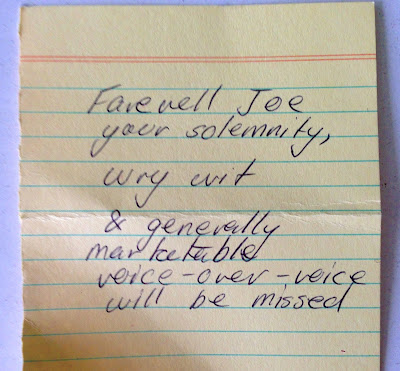 Farewell Joe
your solemnity,
wry wit
& generally
marketable
voice-over-voice
will be missed